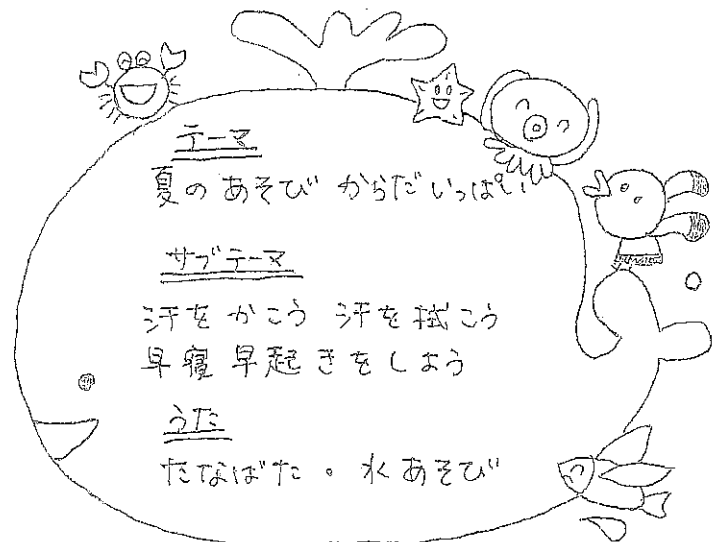 テーマ
夏のあそび からだいっぱい
サブテーマ
汗をかこう 汗を拭こう
早寝早起きをしよう
うた
たなばた。水あそび